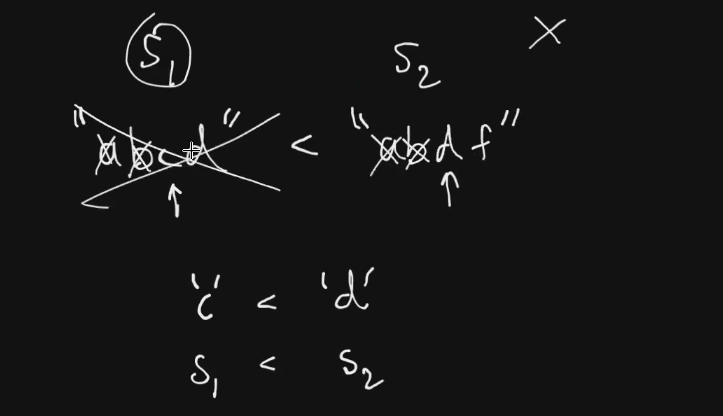 S1 S2 X
"abcd" < "abdf"
'c' < 'd'
S1 < S2